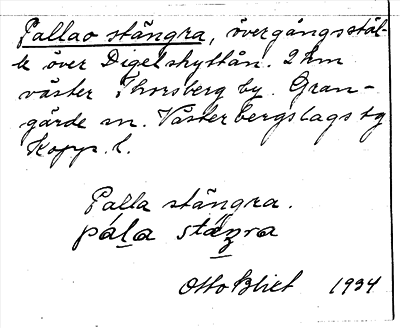 Pallao stängra, övergångsstäl-
le över Digelshyttån. 2 km
väster Thorsberg by. Gran-
gärde sn. Västerbergslags tg
Kopp. l.
Palla stängra.
pála stäŋra
Otto Blixt 1934